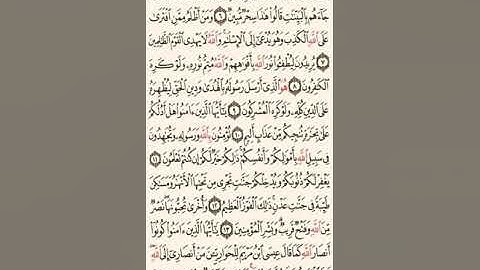 جَآءَهُم بِٱلْبَيِّنَٰتِ قَالُوا۟ هَٰذَا سِحْرٌ مُّبِينٌ ٦ وَمَنْ أَظْلَمُ مِمَّنِ ٱفْتَرَىٰ
عَلَى ٱللَّهِ ٱلْكَذِبَ وَهُوَ يُدْعَىٰٓ إِلَى ٱلْإِسْلَٰمِ وَٱللَّهُ لَا يَهْدِى ٱلْقَوْمَ ٱلظَّٰلِمِينَ
٧ يُرِيدُونَ لِيُطْفِـُٔوا۟ نُورَ ٱللَّهِ بِأَفْوَٰهِهِمْ وَٱللَّهُ مُتِمُّ نُورِهِۦ وَلَوْ كَرِهَ
ٱلْكَٰفِرُونَ ٨ هُوَ ٱلَّذِىٓ أَرْسَلَ رَسُولَهُۥ بِٱلْهُدَىٰ وَدِينِ ٱلْحَقِّ لِيُظْهِرَهُۥ
عَلَى ٱلدِّينِ كُلِّهِۦ وَلَوْ كَرِهَ ٱلْمُشْرِكُونَ ٩ يَٰٓأَيُّهَا ٱلَّذِينَ ءَامَنُوا۟ هَلْ أَدُلُّكُمْ
عَلَىٰ تِجَٰرَةٍ تُنجِيكُم مِّنْ عَذَابٍ أَلِيمٍ ١٠ تُؤْمِنُونَ بِٱللَّهِ وَرَسُولِهِۦ وَتُجَٰهِدُونَ
فِى سَبِيلِ ٱللَّهِ بِأَمْوَٰلِكُمْ وَأَنفُسِكُمْ ذَٰلِكُمْ خَيْرٌ لَّكُمْ إِن كُنتُمْ تَعْلَمُونَ ١١
يَغْفِرْ لَكُمْ ذُنُوبَكُمْ وَيُدْخِلْكُمْ جَنَّٰتٍ تَجْرِى مِن تَحْتِهَا ٱلْأَنْهَٰرُ وَمَسَٰكِنَ
طَيِّبَةً فِى جَنَّٰتِ عَدْنٍ ذَٰلِكَ ٱلْفَوْزُ ٱلْعَظِيمُ ١٢ وَأُخْرَىٰ تُحِبُّونَهَا نَصْرٌ
مِّنَ ٱللَّهِ وَفَتْحٌ قَرِيبٌ وَبَشِّرِ ٱلْمُؤْمِنِينَ ١٣ يَٰٓأَيُّهَا ٱلَّذِينَ ءَامَنُوا۟ كُونُوٓا۟
أَنصَارَ ٱللَّهِ كَمَا قَالَ عِيسَى ٱبْنُ مَرْيَمَ لِلْحَوَارِيِّـۧنَ مَنْ أَنصَارِىٓ إِلَى ٱللَّهِ